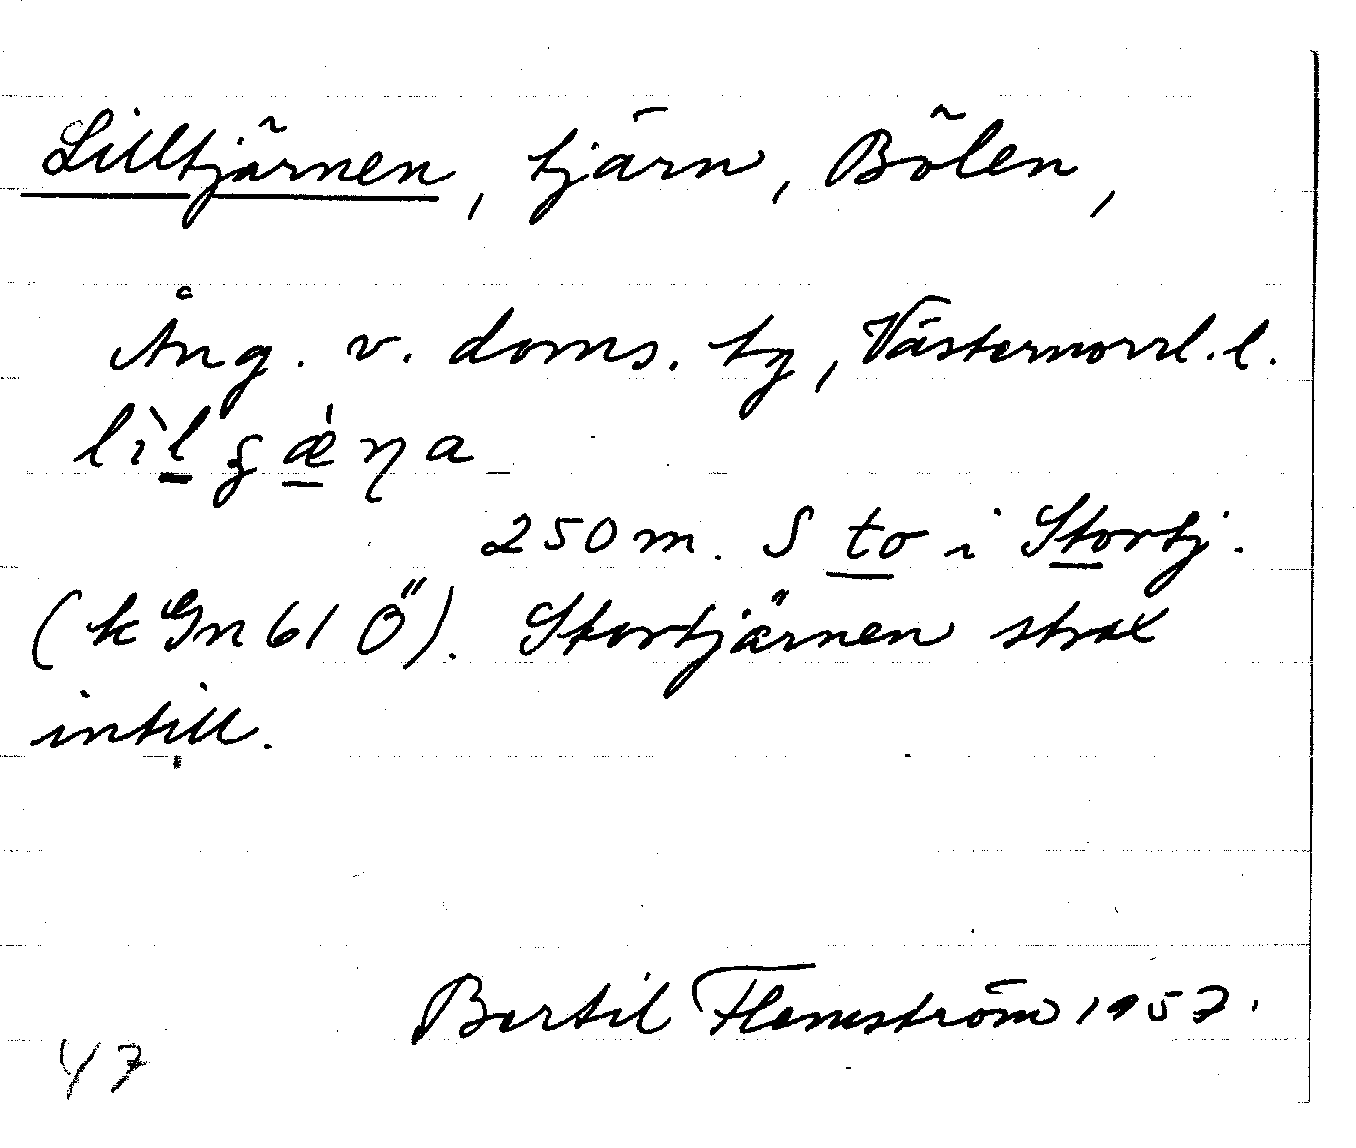 Lilltjärnen, tjärn, Bölen,
Ång. v. doms. tg, Västernorrl. l.
250 m. S to i Stortj.
(k Gn 61 Ö). Stortjärnen strax
intill.
Bertil Flemström 1957.
47